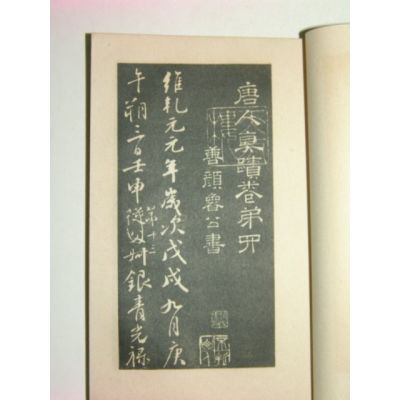 唐人真蹟卷弟四
顏魯公書
維乾元元年歲次戊戌九月庚
午朔三日壬申第十三從父叔銀青光祿